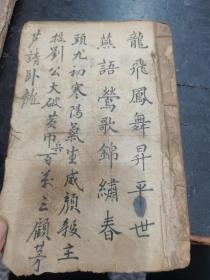 龍飛鳳舞昇平世
燕語鶯歌錦繡春
頭九初寒陽氣生威顏殺主
投劉公大破黃巾兵百萬三顧茅
芦請卧龍